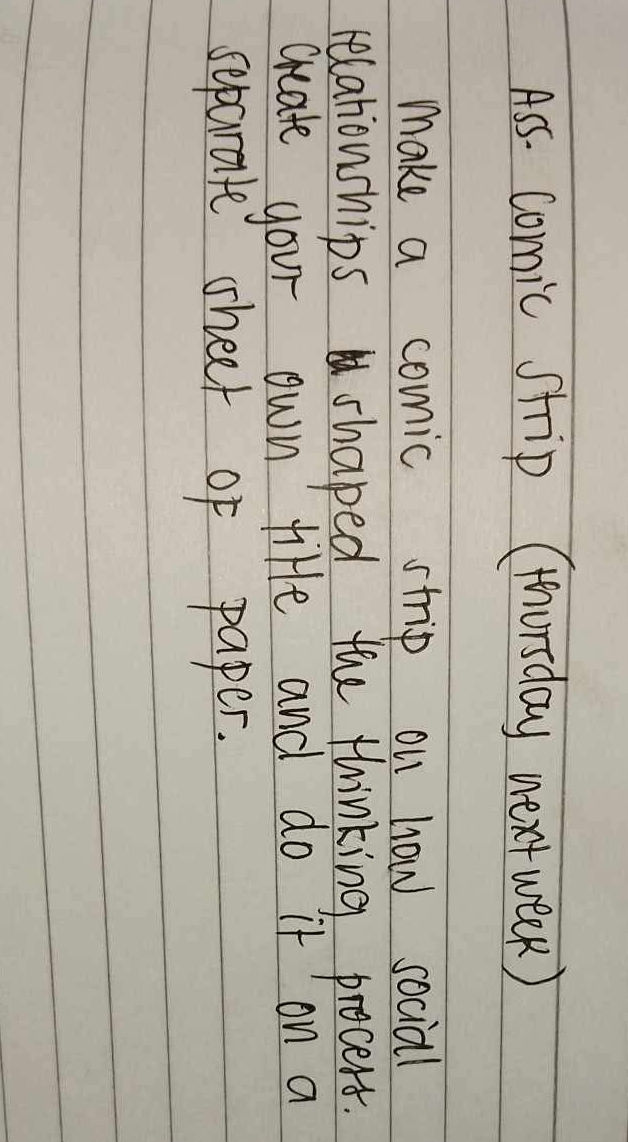 Ass. Comic Strip (thursday next week)
Make a comic strip on how social
relationships shaped the thinking process.
Create your own title and do it on a
separate sheet of paper.